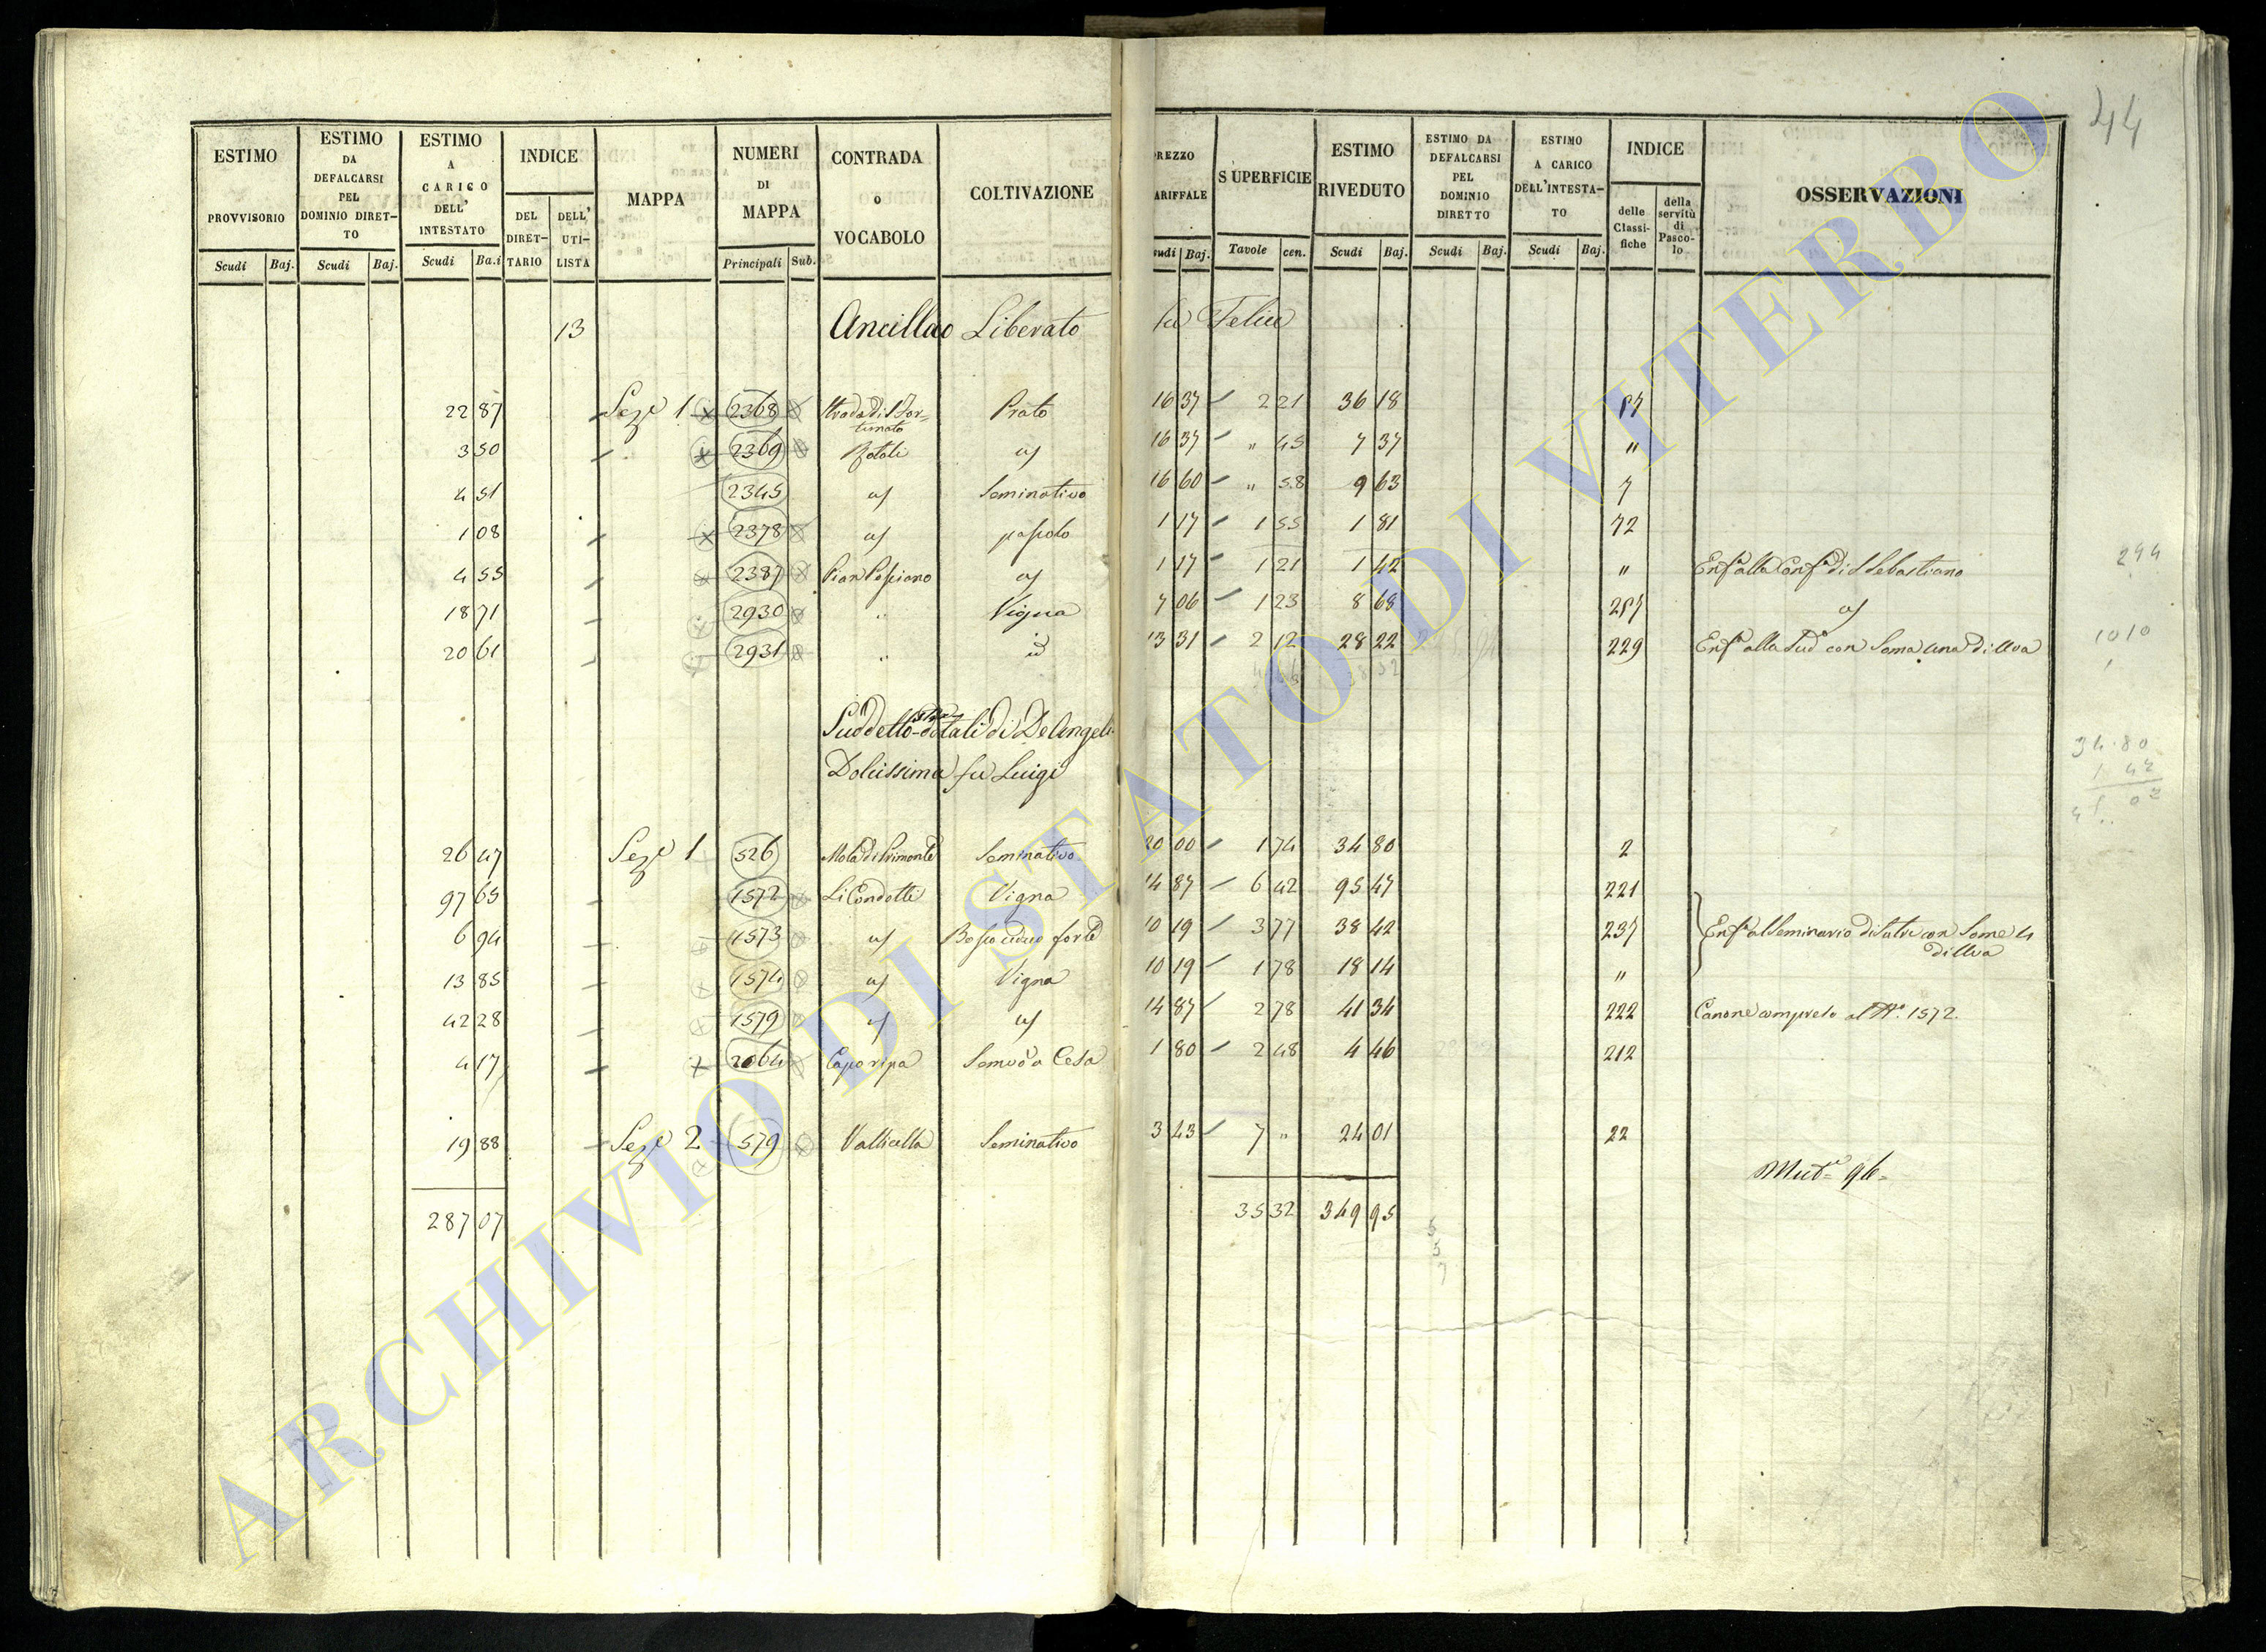 44
ESTIMO PROVVISORIO | ESTIMO DA DEFALCARSI PEL DOMINIO DIRET-TO | ESTIMO A CARICO DELL' INTESTATO | INDICE | MAPPA | NUMERI DI MAPPA | CONTRADA o VOCABOLO | COLTIVAZIONE | REZZO ARIFFALE | SUPERFICIE | ESTIMO RIVEDUTO | ESTIMO DA DEFALCARSI PEL DOMINIO DIRETTO | ESTIMO A CARICO DELL'INTESTA-TO | INDICE | OSSERVAZIONI
DEL DIRET-TARIO | DELL' UTI-LISTA | delle Classi-fiche | della servitù di Pasco-lo
Scudi | Baj. | Scudi | Baj. | Scudi | Ba.i | Principali | Sub. | udi | Baj. | Tavole | cen. | Scudi | Baj. | Scudi | Baj. | Scudi | Baj.
13 Ancillao Liberato fu Felice
22 87 Seze 1 2368 Strada di S. For-tunato Prato 16 37 2 21 36 18
3 50 2369 16 37 " 45 7 37 "
4 51 2345 Seminativo 16 60 " 58 9 63 7
1 08 2378 pascolo 1 17 1 55 1 81 72
4 55 2387 1 17 1 21 1 42 " Enfa alla Confa di S Sebastiano 294
18 71 2930 " Vigna 7 06 1 23 8 68
20 61 2931 " id 13 31 2 12 28 22 229 Enfa alla Sud con Soma una di Uva 1010
Suddetto dotali di DeAngelis
Dolcissima fu Luigi
34.80
1 42
26 47 Seze 1 526 Seminativo 20 00 1 74 34 80 2
97 65 1572 Li Condotti Vigna 14 87 6 42 95 47 221
6 94 1573 Bosco ceduo forte 10 19 3 77 38 42 237 Enfa al Seminario di Sutri con Some 4 di Uva
13 85 1574 Vigna 10 19 1 78 18 14 "
42 28 1579 14 87 2 78 41 34 222 Canone compreso al No. 1572.
4 17 2064 Caporipa Semvo a Cesa 1 80 2 48 4 46 212
19 88 Seze 2 579 Vallicella Seminativo 3 43 7 " 24 01 22
Muta 96
287 07 35 32 349 95
5
5
7
ARCHIVIO DI STATO DI VITERBO